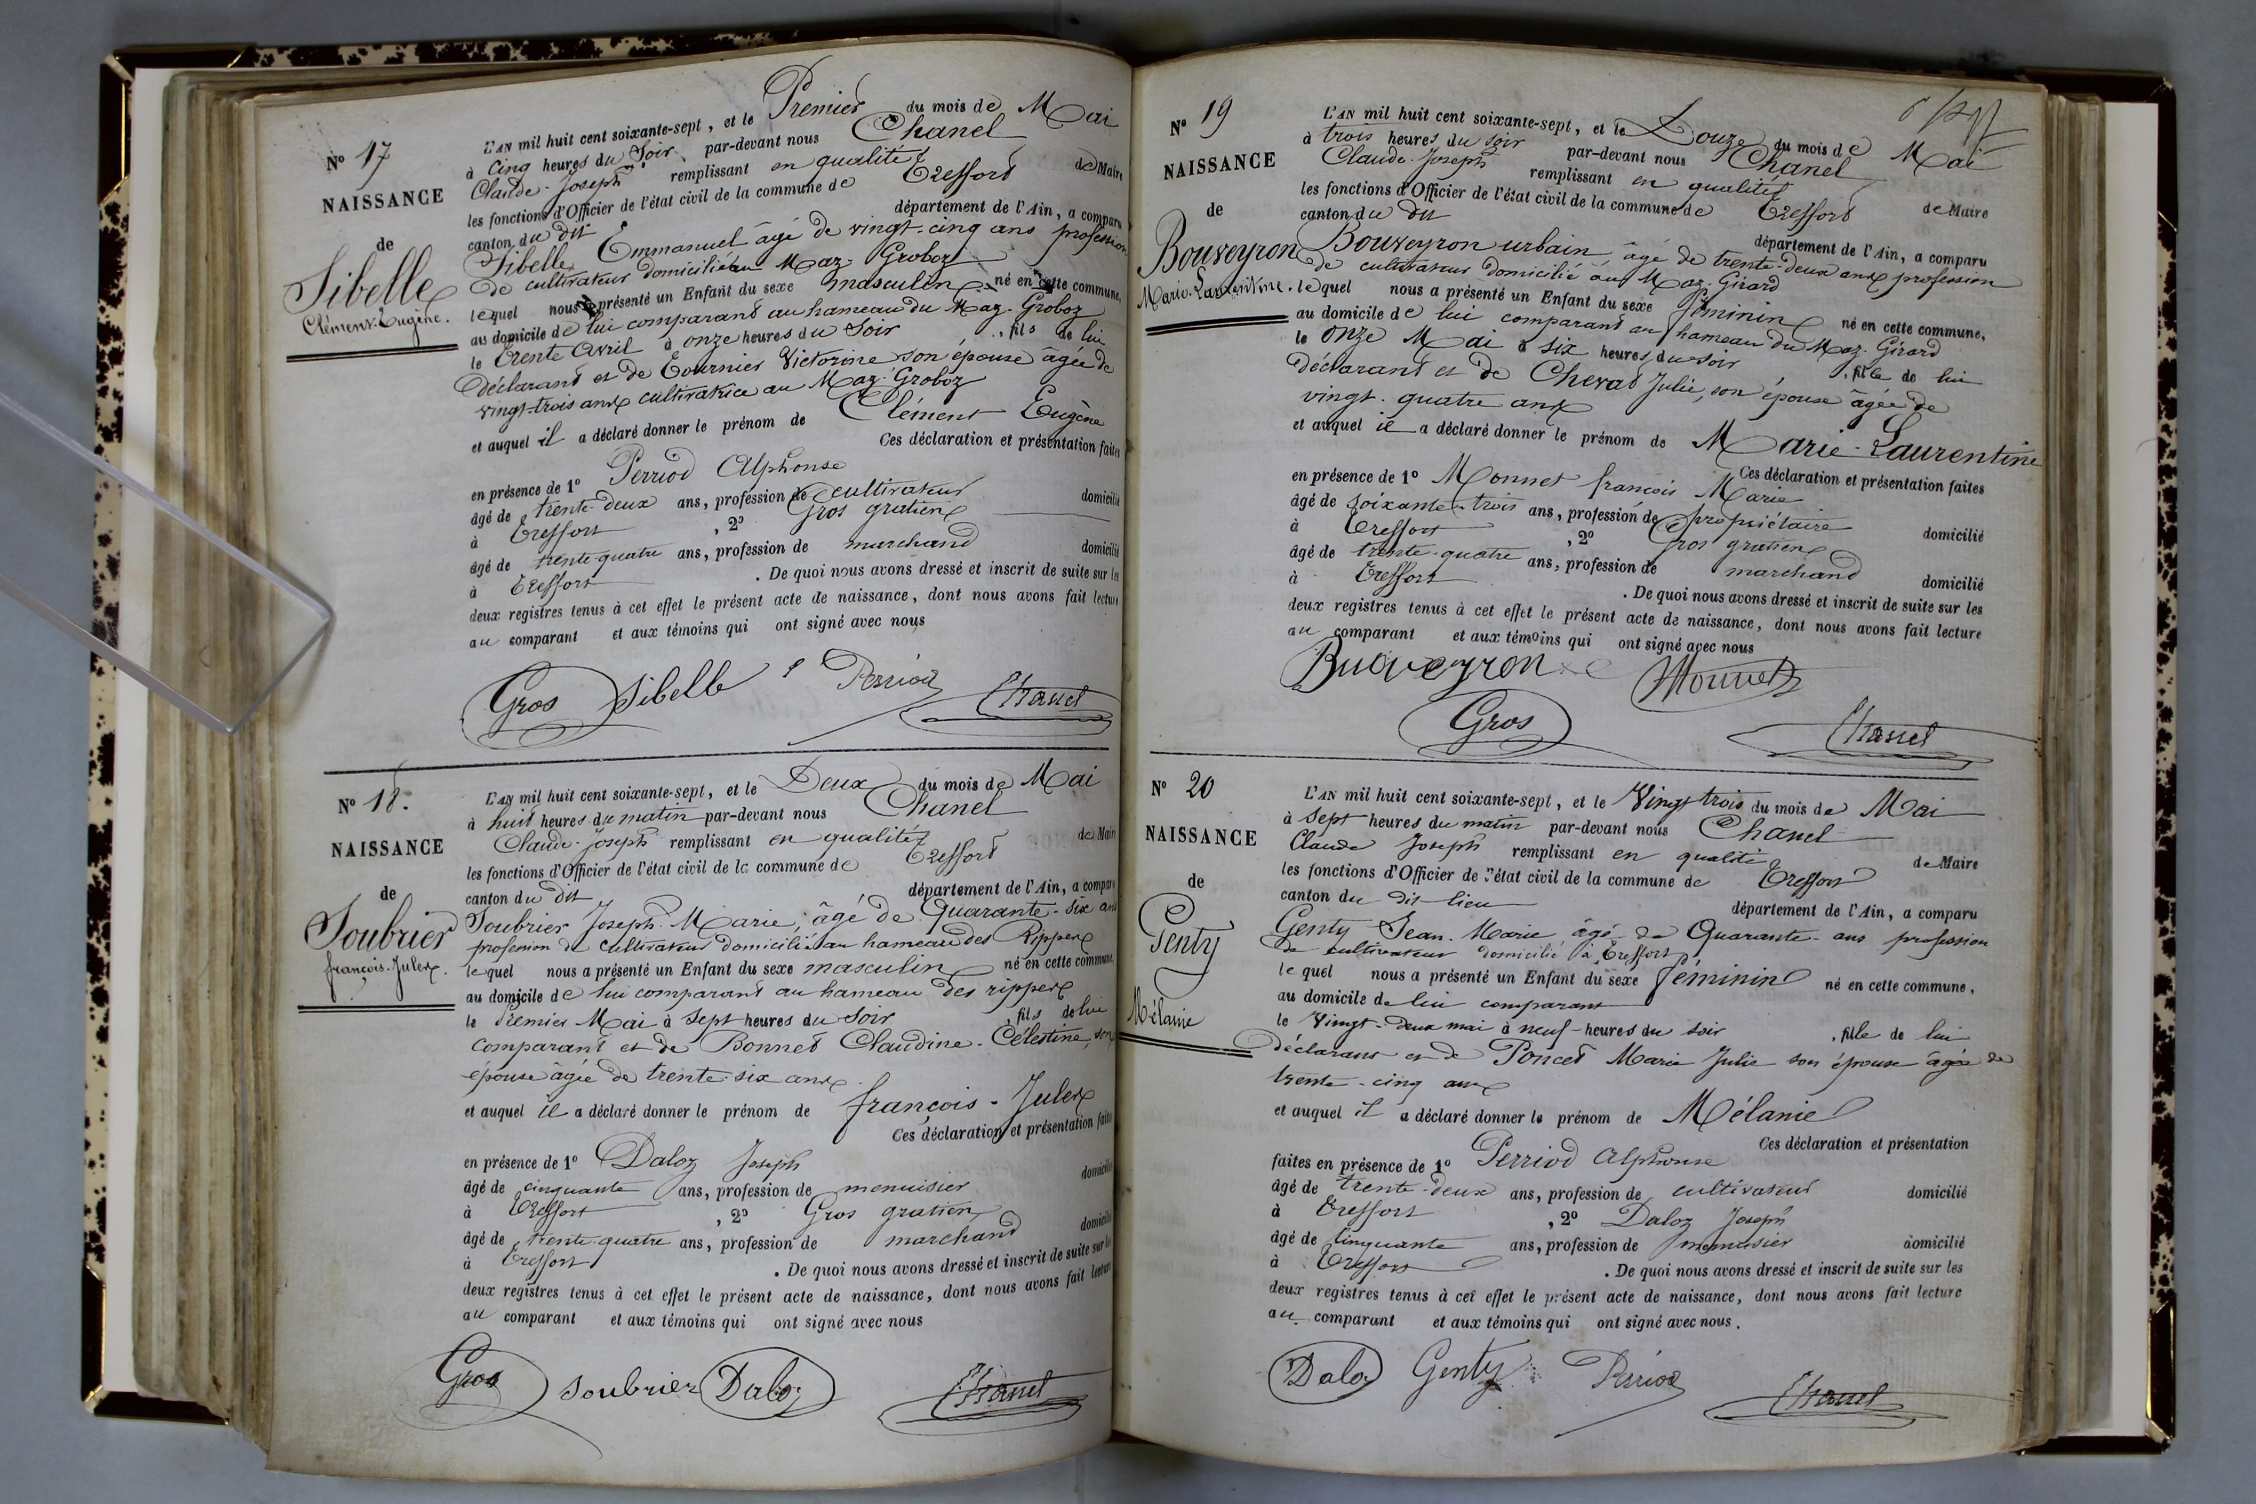 N° 17
NAISSANCE
de
Sibelle
Clément-Eugène.
L'AN mil huit cent soixante-sept, et le Premier du mois de Mai
à Cinq heures du Soir, par-devant nous Chanel
Claude-Joseph remplissant en qualité de Maire
les fonctions d'Officier de l'état civil de la commune de Treffort
canton du dit département de l'Ain, a comparu
Sibelle Emmanuel âgé de vingt-cinq ans profession
de cultivateur domicilié au Maz-Groboz
lequel nous a présenté un Enfant du sexe masculin né en cette commune,
au domicile de lui comparant au hameau du Maz-Groboz
le trente Avril à onze heures du Soir, fils de lui
déclarant et de Tournier Victorine son épouse âgée de
vingt-trois ans cultivatrice au Maz-Groboz
et auquel il a déclaré donner le prénom de Clément Eugène
Ces déclaration et présentation faites
en présence de 1° Perriod Alphonse
âgé de trente-deux ans, profession de cultivateur domicilié
à Treffort, 2° Gros gratien
âgé de trente-quatre ans, profession de marchand domicilié
à Treffort. De quoi nous avons dressé et inscrit de suite sur les
deux registres tenus à cet effet le présent acte de naissance, dont nous avons fait lecture
au comparant et aux témoins qui ont signé avec nous
Gros Sibelle Perriod Chanel
N° 18.
NAISSANCE
de
Soubrier
françois-Jules.
L'AN mil huit cent soixante-sept, et le Deux du mois de Mai
à huit heures du matin par-devant nous Chanel
Claude-Joseph remplissant en qualité de Maire
les fonctions d'Officier de l'état civil de la commune de Treffort
canton du dit département de l'Ain, a comparu
Soubrier Joseph-Marie, âgé de Quarante-six ans
profession de cultivateur domicilié au hameau des Rippes
lequel nous a présenté un Enfant du sexe masculin né en cette commune,
au domicile de lui comparant au hameau des rippes
le Premier Mai à Sept heures du Soir, fils de lui
comparant et de Bonnet Claudine-Célestine, son
épouse âgée de trente-six ans.
et auquel il a déclaré donner le prénom de françois-Jules
Ces déclaration et présentation faites
en présence de 1° Daloz Joseph
âgé de cinquante ans, profession de menuisier domicilié
à Treffort, 2° Gros gratien
âgé de trente-quatre ans, profession de marchand domicilié
à Treffort. De quoi nous avons dressé et inscrit de suite sur les
deux registres tenus à cet effet le présent acte de naissance, dont nous avons fait lecture
au comparant et aux témoins qui ont signé avec nous
Gros Soubrier Daloz Chanel
N° 19
NAISSANCE
de
Bouveyron
Marie-Laurentine.
L'AN mil huit cent soixante-sept, et le Douze du mois de Mai
à trois heures du soir par-devant nous Chanel
Claude-Joseph remplissant en qualité de Maire
les fonctions d'Officier de l'état civil de la commune de Treffort
canton du dit département de l'Ain, a comparu
Bouveyron urbain âgé de trente-deux ans profession
de cultivateur domicilié au Maz-Girard
lequel nous a présenté un Enfant du sexe féminin né en cette commune,
au domicile de lui comparant au hameau du Maz-Girard
le onze Mai à six heures du soir, fille de lui
déclarant et de Chevat Julie, son épouse âgée de
vingt-quatre ans
et auquel il a déclaré donner le prénom de Marie-Laurentine
Ces déclaration et présentation faites
en présence de 1° Monnet françois Marie
âgé de soixante-trois ans, profession de propriétaire domicilié
à Treffort, 2° Gros gratien
âgé de trente-quatre ans, profession de marchand domicilié
à Treffort. De quoi nous avons dressé et inscrit de suite sur les
deux registres tenus à cet effet le présent acte de naissance, dont nous avons fait lecture
au comparant et aux témoins qui ont signé avec nous
Buoveyron Monnet
Gros Chanel
N° 20
NAISSANCE
de
Genty
Mélanie
L'AN mil huit cent soixante-sept, et le Vingt trois du mois de Mai
à Sept heures du matin par-devant nous Chanel
Claude Joseph remplissant en qualité de Maire
les fonctions d'Officier de l'état civil de la commune de Treffort
canton du dit-lieu département de l'Ain, a comparu
Genty Jean-Marie âgé de Quarante-ans profession
de cultivateur domicilié à Treffort
lequel nous a présenté un Enfant du sexe féminin né en cette commune,
au domicile de lui comparant
le Vingt-deux mai à neuf heures du soir, fille de lui
déclarant et de Poncet Marie Julie son épouse âgée de
trente-cinq ans
et auquel il a déclaré donner le prénom de Mélanie
Ces déclaration et présentation
faites en présence de 1° Perriod Alphonse
âgé de trente-deux ans, profession de cultivateur domicilié
à Treffort, 2° Daloz Joseph
âgé de cinquante ans, profession de menuisier domicilié
à Treffort. De quoi nous avons dressé et inscrit de suite sur les
deux registres tenus à cet effet le présent acte de naissance, dont nous avons fait lecture
au comparant et aux témoins qui ont signé avec nous.
Daloz Genty Perriod Chanel